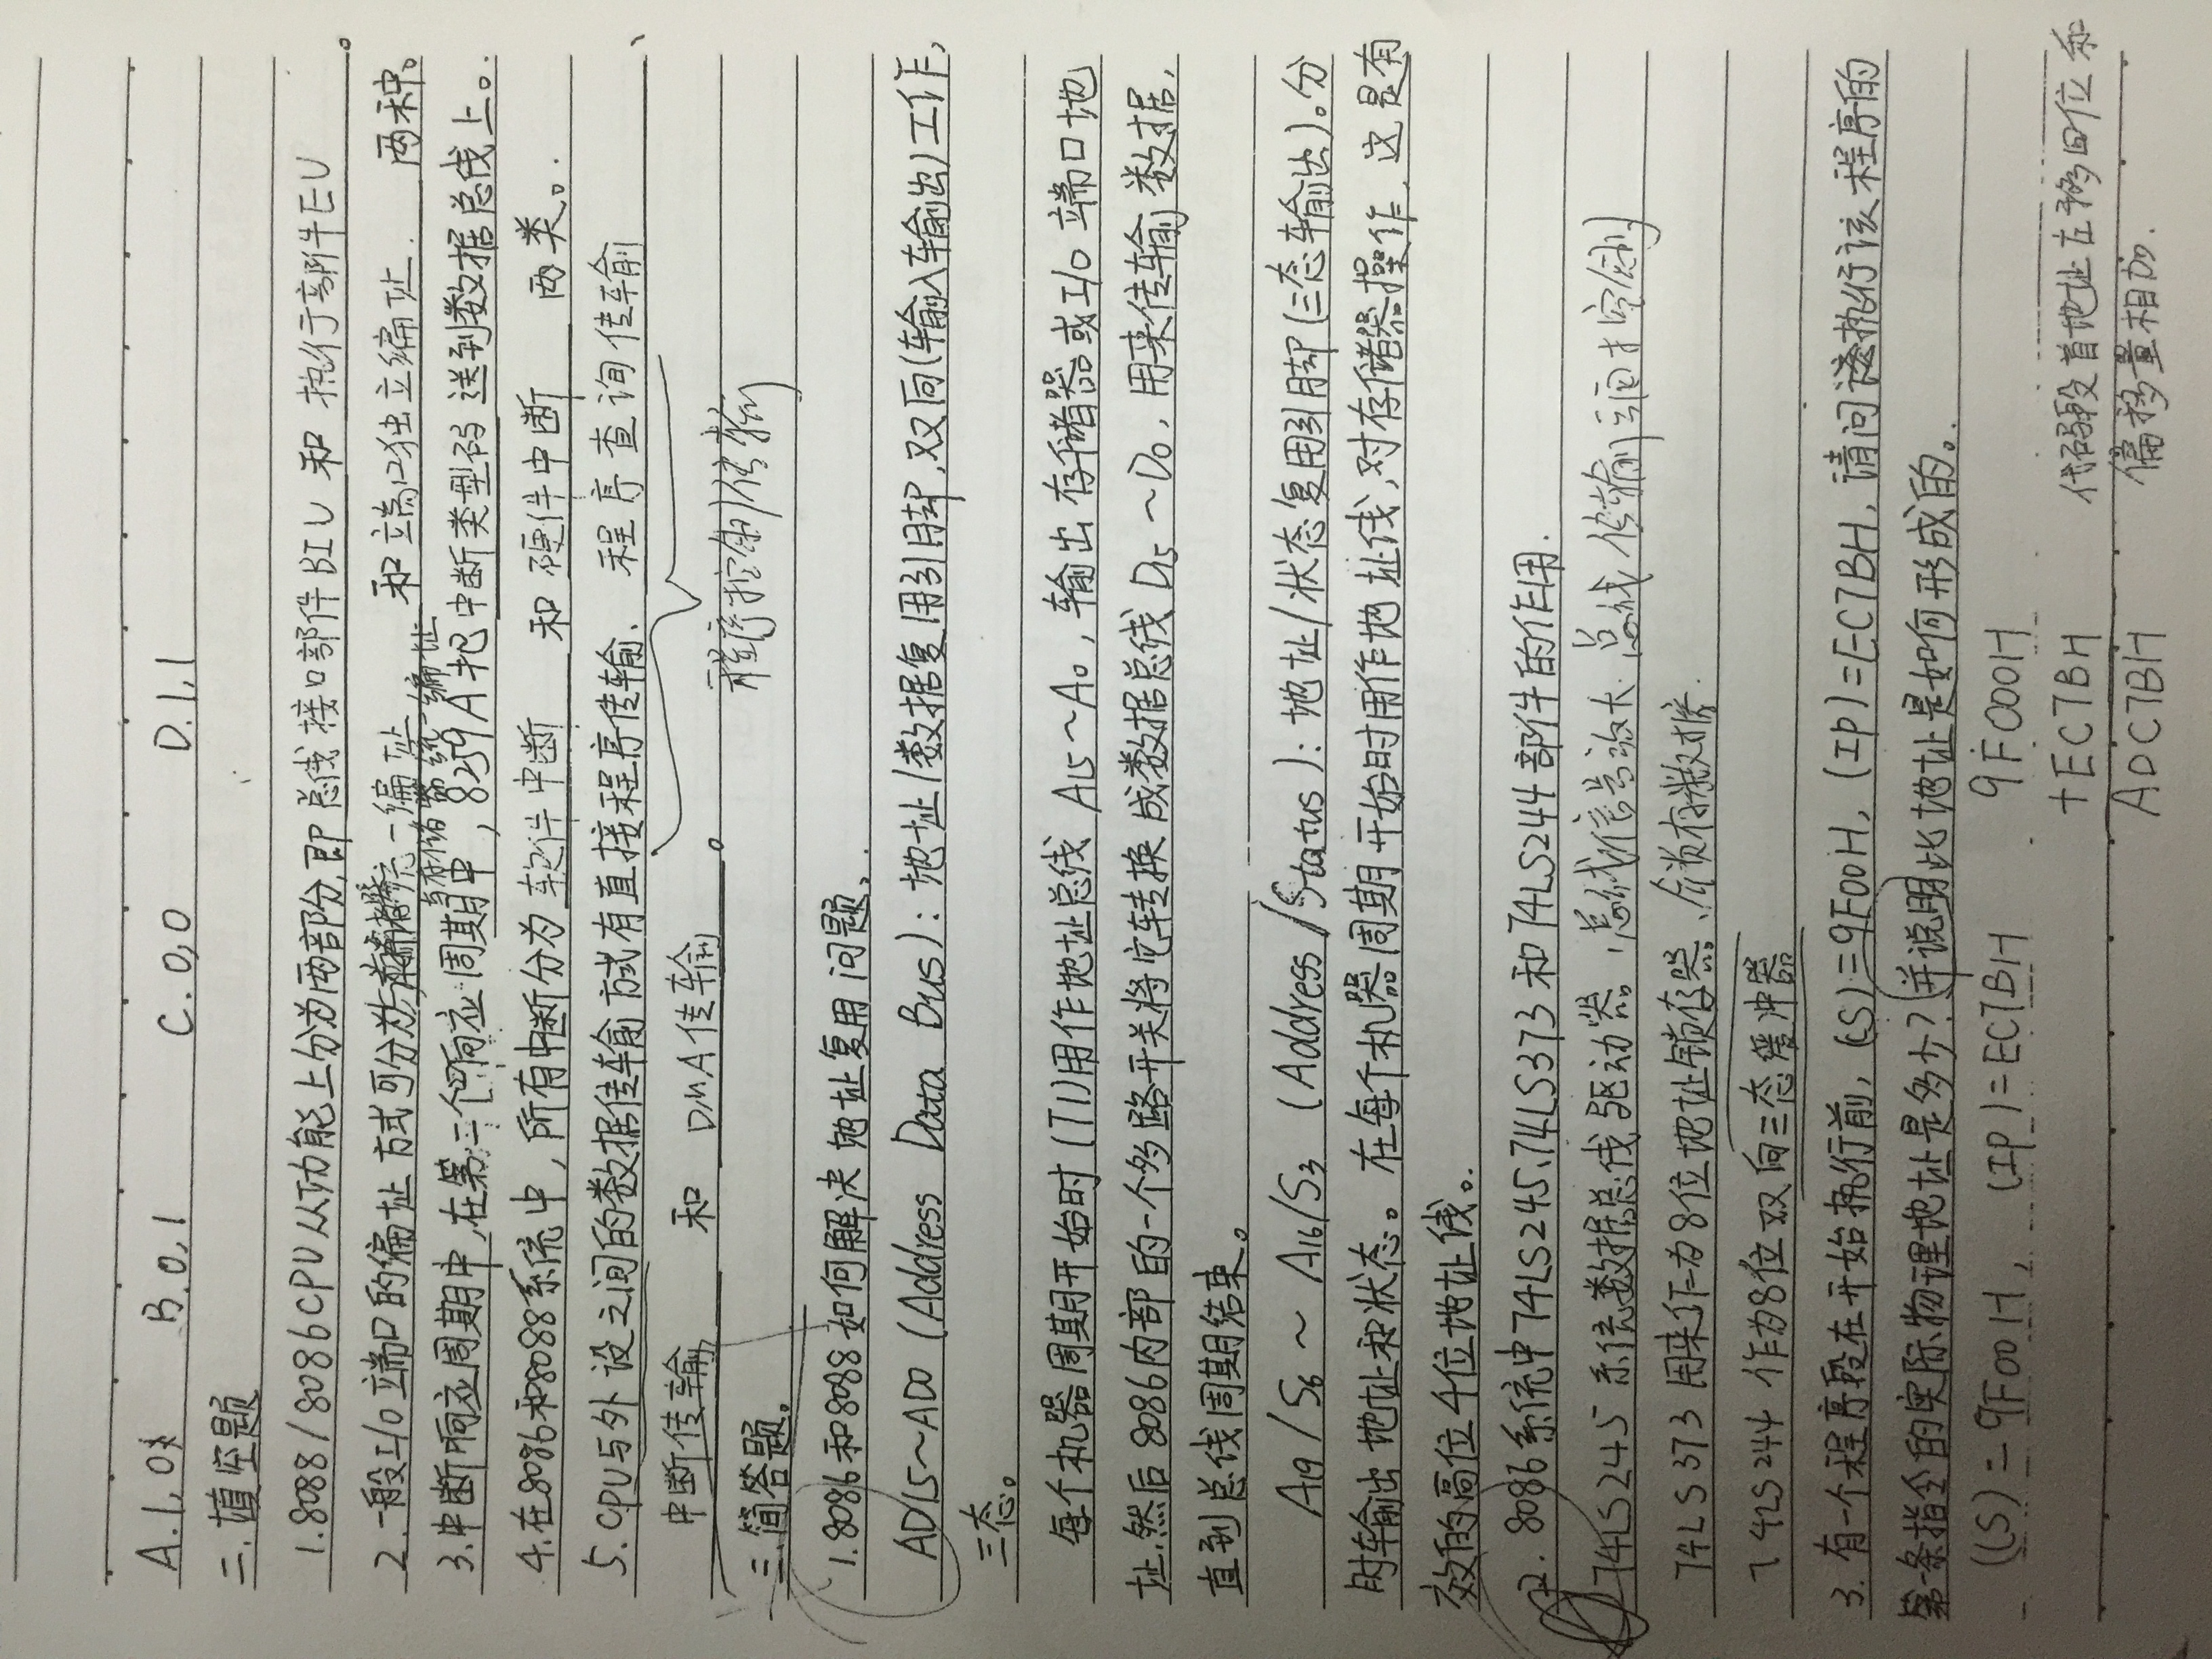 A.1,0 B.0,1 C.0,0 D.1,1
二.填空题
1.8088/8086CPU从功能上分为两部分,即总线接口部件BIU 和 执行部件EU。
2.一般I/O端口的编址方式可分为与存储器统一编址 和端口独立编址. 两种。
与存储器统一编址
3.中断响应周期中,在第二个响应周期中,8259A把中断类型码送到数据总线上。
4.在8086和8088系统中,所有中断分为软件中断 和 硬件中断 两类。
5.CPU与外设之间的数据传输方式有直接程序传输、程序查询传输、
中断传输 和 DMA传输。
程序控制传输
三.简答题。
1.8086和8088如何解决地址复用问题。
AD15~AD0 (Address Data Bus):地址/数据复用引脚,双向(输入输出)工作,
三态。
每个机器周期开始时(T1)用作地址总线 A15~A0,输出存储器或I/O端口地
址,然后8086内部的一个多路开关将它转换成数据总线D15~D0,用来传输数据,
直到总线周期结束。
A19/S6 ~ A16/S3 (Address/Status):地址/状态复用引脚(三态输出)。分
时输出地址和状态。在每个机器周期开始时用作地址线,对存储器操作,这是有
效的高位4位地址线。
2. 8086系统中74LS245、74LS373和74LS244部件的作用.
74LS245 系统数据总线驱动器,总线信号放大 总线传输 控制
74LS373 用来作为8位地址锁存器、锁存数据.
74LS244 作为8位双向三态缓冲器
3.有一个程序段在开始执行前,(CS)=9F00H,(IP)=EC7BH,请问该执行该程序的
第一条指令的实际物理地址是多少?并说明此地址是如何形成的。
(CS)=9F00H, (IP)=EC7BH 9F000H
+EC7BH 代码段首地址左移四位和
ADC7BH 偏移量相加.